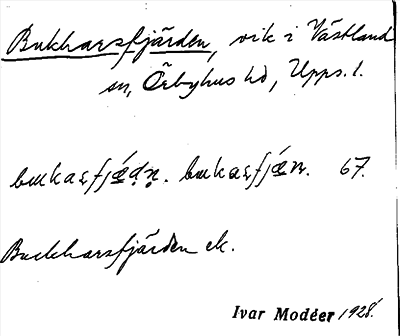 Bukharsfjärden, vik i Västland
sn, Örbyhus hd, Upps. l.
bukaʂfjǽḍṇ. bukaʂfjǽṇ. 67.
Buckharsfjärden ek.
Ivar Modéer 1928.